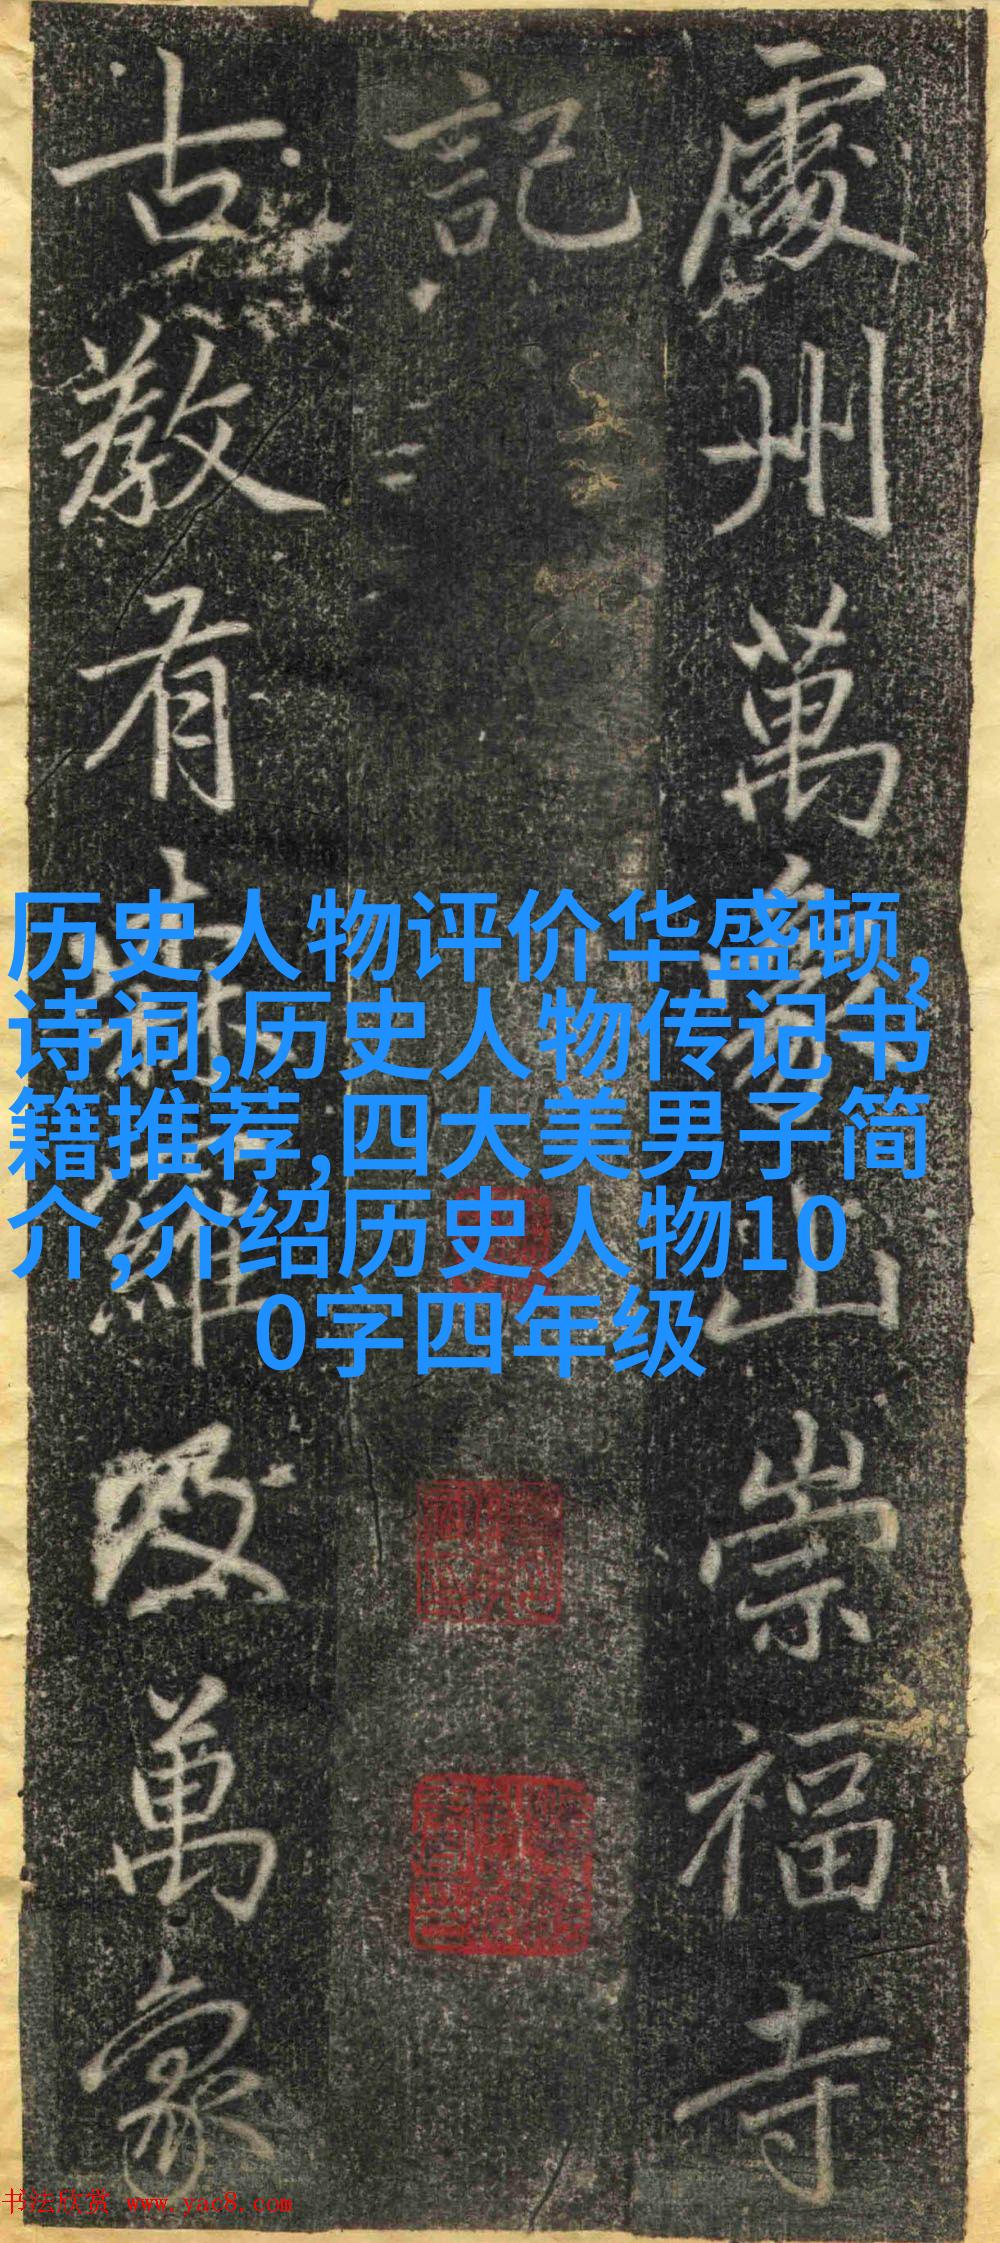 處州萬象山崇福寺
記
古教有森羅及萬象
历史人物评价华盛顿,
诗词,历史人物传记书
籍推荐,四大美男子简
介,介绍历史人物10
0字四年级
书法欣赏 www.yac8.com